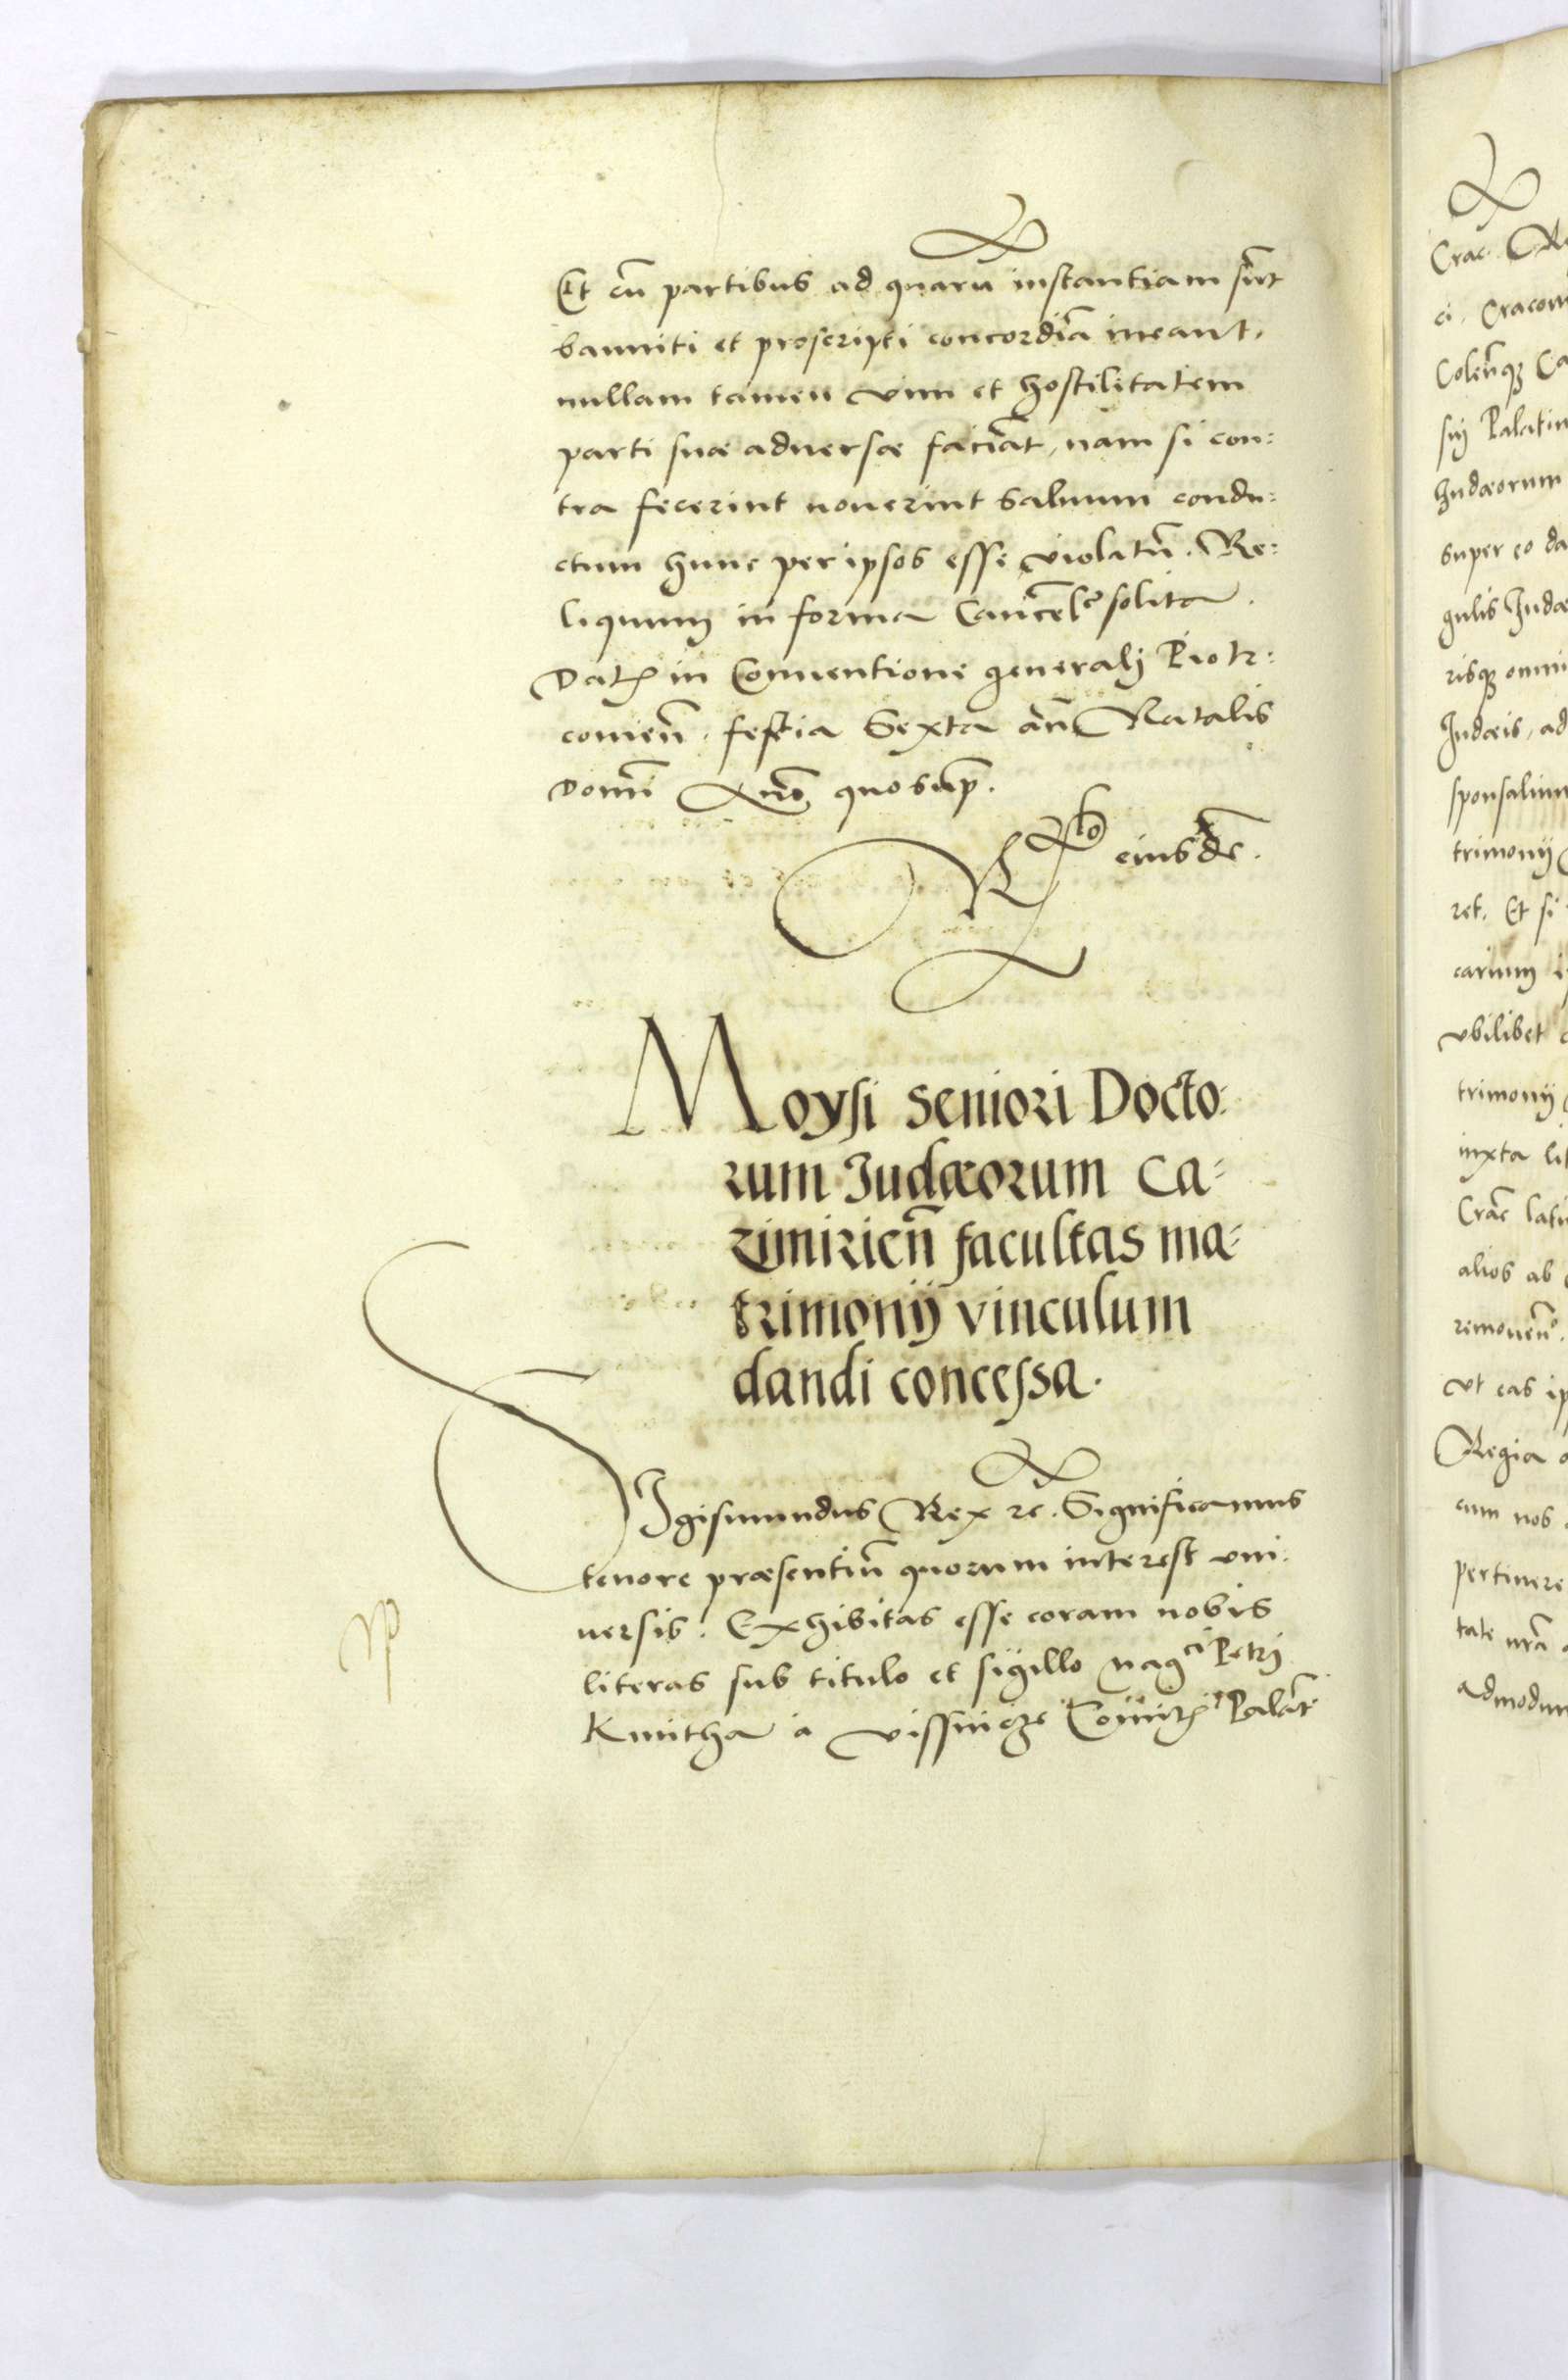 Et cū partibus ad quarū instantiam sūt
banniti et proscripti concordiā ineant.
nullam tamen vim et hostilitatem
parti suæ aduersæ faciāt, nam si con:
tra fecerint nouerint saluum condu:
ctum hunc per ipsos esse violatū. Re:
liquum in forma Cancel solita.
Dat in Conuentione generalj Piotr:
couieñ. feria Sexta añ Natalis
Domī Anō quo sup̄.
Rᵗᵒ eiusdē.
Moysi seniori Docto:
rum Iudæorum Ca:
zimirieñ facultas ma:
trimonij vinculum
dandi concessa.
SIgismundus Rex zc. Significamus
tenore præsentiū quorum interest vni:
uersis. Exhibitas esse coram nobis
literas sub titulo et sigillo Magᶜⁱ Petrj
Kmitha a vissnicze Comit Palat
Crac.
ci. Cracou
Colenq̃ Ca
sij Palatin
Iudæorum
super eo da
gulis Iudæ
risq̃ omni
Iudæis, ad
sponsalium
trimonij
ret. Et si
carium i
vbilibet
trimonij
iuxta lit
Crac̄ lati
alios ab
remouen
vt eas ip
Regia
cum nos
pertinere
tate nrā
admodum